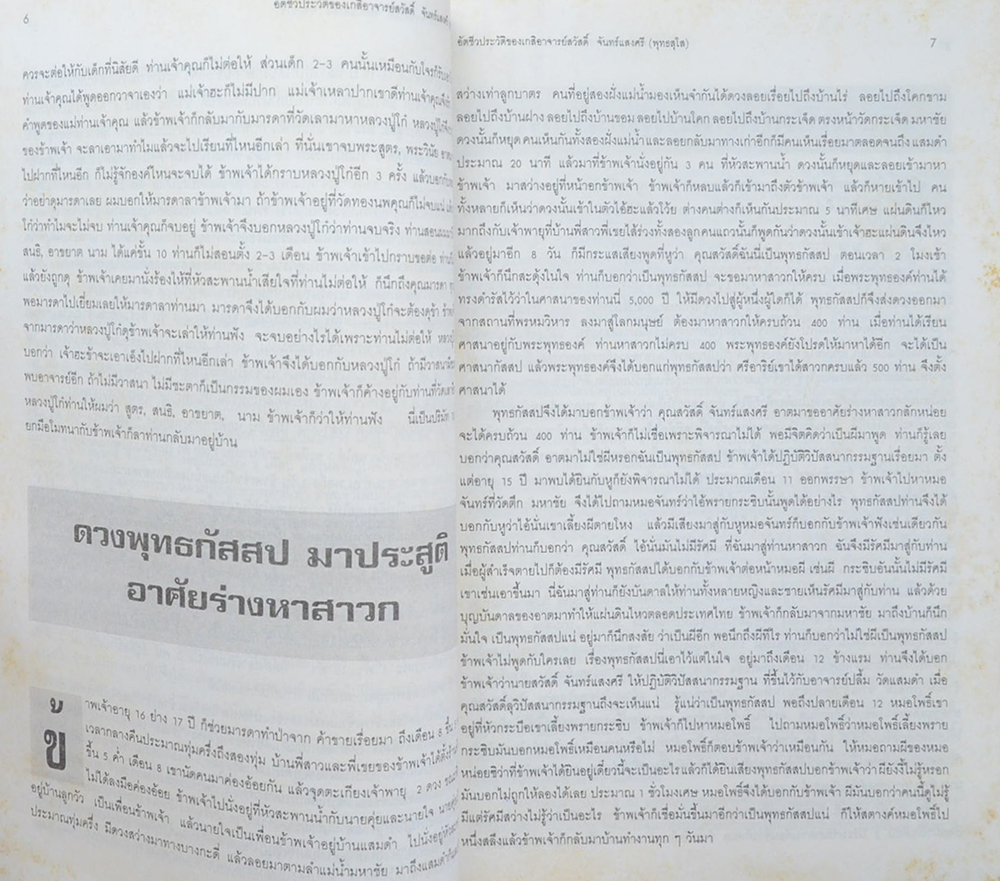 6
อัตชีวประวัติของเกสิอาจารย์สวัสดิ์ จันทร์แสงศรี
ควรจะต่อให้กับเด็กที่นิสัยดี ท่านเจ้าคุณก็ไม่ต่อให้ ส่วนเด็ก 2-3 คนนั้นเหมือนกับโจรก็รับ
ท่านเจ้าคุณได้พูดออกวาจาเองว่า แม่เจ้าฮะก็ไม่มีปาก แม่เจ้าเหลาปากเขาดีท่านเจ้าคุณจึง
คำพูดของแม่ท่านเจ้าคุณ แล้วข้าพเจ้าก็กลับมากับมารดาที่วัดเลามาหาหลวงปู่ไก๋ หลวงปู่ไก๋จึง
ของข้าพเจ้า จะลาเอามาทำไมแล้วจะไปเรียนที่ไหนอีกเล่า ที่นั่นเขาจบพระสูตร, พระวินัย
ไปฝากที่ไหนอีก ก็ไม่รู้จักองค์ไหนจะจบได้ ข้าพเจ้าได้กราบหลวงปู่ไก๋อีก 3 ครั้ง แล้วบอก
ว่าอย่าดุมารดาเลย ผมบอกให้มารดาลาข้าพเจ้ามา ถ้าข้าพเจ้าอยู่ที่วัดทองนพคุณก็ไม่จบแน่
ไก๋ว่าทำไมจะไม่จบ ท่านเจ้าคุณก็จบอยู่ ข้าพเจ้าจึงบอกหลวงปู่ไก๋ว่าท่านจบจริง ท่านสอน
สนธิ, อาขยาต นาม ได้แค่ชั้น 10 ท่านก็ไม่สอนตั้ง 2-3 เดือน ข้าพเจ้าเข้าไปกราบขอต่อ
แล้วยังถูกดุ ข้าพเจ้าเคยมานั่งร้องไห้ที่หัวสะพานน้ำเสียใจที่ท่านไม่ต่อให้ ก็นึกถึงคุณมารดา
พอมารดาไปเยี่ยมเลยให้มารดาลาท่านมา มารดาจึงได้บอกกับผมว่าหลวงปู่ไก๋จะต้องดุร้า
จากมารดาว่าหลวงปู่ไก๋ดุข้าพเจ้าจะเล่าให้ท่านฟัง จะจบอย่างไรได้เพราะท่านไม่ต่อให้
บอกว่า เจ้าฮะข้าจะเอาเอ็งไปฝากที่ไหนอีกเล่า ข้าพเจ้าจึงได้บอกกับหลวงปู่ไก๋ ถ้ามีวาสนา
พบอาจารย์อีก ถ้าไม่มีวาสนา ไม่มีชะตาก็เป็นกรรมของผมเอง ข้าพเจ้าก็ค้างอยู่กับท่านที่วัด
หลวงปู่ไก๋ท่านให้ผมว่า สูตร, สนธิ, อาขยาต, นาม ข้าพเจ้าก็ว่าให้ท่านฟัง นี่เป็น
ยกมือโมทนากับข้าพเจ้าก็ลาท่านกลับมาอยู่บ้าน
ดวงพุทธกัสสป มาประสูติ
อาศัยร่างหาสาวก
ข้าพเจ้าอายุ 16 ย่าง 17 ปี ก็ช่วยมารดาทำป่าจาก ค้าขายเรื่อยมา ถึงเดือน 8 ขึ้น
เวลากลางคืนประมาณทุ่มครึ่งถึงสองทุ่ม บ้านพี่สาวและพี่เขยของข้าพเจ้าได้ตั้ง
ขึ้น 5 ค่ำ เดือน 8 เขานัดคนมาค่องอ้อยกัน แล้วจุดตะเกียงเจ้าพายุ 2 ดวง
ไม่ได้ลงมือค่องอ้อย ข้าพเจ้าไปนั่งอยู่ที่หัวสะพานน้ำกับนายคุ่ยและนายใจ
อยู่บ้านลูกวัว เป็นเพื่อนข้าพเจ้า แล้วนายใจเป็นเพื่อนข้าพเจ้าอยู่บ้านแสมดำ ไปนั่งอยู่
ประมาณทุ่มครึ่ง มีดวงสว่างมาทางบางกะดี่ แล้วลอยมาตามลำแม่น้ำมหาชัย มาถึงแสมดำ
อัตชีวประวัติของเกสิอาจารย์สวัสดิ์ จันทร์แสงศรี (พุทธสุโส)
7
สว่างเท่าลูกบาตร คนที่อยู่สองฝั่งแม่น้ำมองเห็นจำกันได้ดวงลอยเรื่อยไปถึงบ้านไร่ ลอยไปถึงโคกขาม
ลอยไปถึงบ้านฝาง ลอยไปถึงบ้านขอม ลอยไปบ้านโคก ลอยไปถึงบ้านกระเจ็ด ตรงหน้าวัดกระเจ็ด มหาชัย
ดวงนั้นก็หยุด คนเห็นกันทั้งสองฝั่งแม่น้ำและลอยกลับมาทางเก่าอีกก็มีคนเห็นเรื่อยมาตลอดจนถึง แสมดำ
ประมาณ 20 นาที แล้วมาที่ข้าพเจ้านั่งอยู่กัน 3 คน ที่หัวสะพานน้ำ ดวงนั้นก็หยุดและลอยเข้ามาหา
ข้าพเจ้า มาสว่างอยู่ที่หน้าอกข้าพเจ้า ข้าพเจ้าก็หลบแล้วก็เข้ามาถึงตัวข้าพเจ้า แล้วก็หายเข้าไป คน
ทั้งหลายก็เห็นว่าดวงนั้นเข้าในตัวไอ้ฮะแล้วไว้ย ต่างคนต่างก็เห็นกันประมาณ 5 นาทีเศษ แผ่นดินก็ไหว
มากถึงกับเจ้าพายุที่บ้านพี่สาวพี่เขยไส้ร่วงทั้งสองลูกคนแถวนั้นก็พูดกันว่าดวงนั้นเข้าเจ้าฮะแผ่นดินจึงไหว
แล้วอยู่มาอีก 8 วัน ก็มีกระแสเสียงพูดที่หูว่า คุณสวัสดิ์ฉันนี้เป็นพุทธกัสสป ตอนเวลา 2 โมงเช้า
ข้าพเจ้าก็นึกสะดุ้งในใจ ท่านก็บอกว่าเป็นพุทธกัสสป จะขอมาหาสาวกให้ครบ เมื่อพระพุทธองค์ท่านได้
ทรงดำรัสไว้ว่าในศาสนาของท่านนี้ 5,000 ปี ให้มีดวงไปสู่ผู้หนึ่งผู้ใดก็ได้ พุทธกัสสปก็จึงส่งดวงออกมา
จากสถานที่พรหมวิหาร ลงมาสู่โลกมนุษย์ ต้องมาหาสาวกให้ครบถ้วน 400 ท่าน เมื่อท่านได้เรียน
ศาสนาอยู่กับพระพุทธองค์ ท่านหาสาวกไม่ครบ 400 พระพุทธองค์ยังโปรดให้มาหาได้อีก จะได้เป็น
ศาสนากัสสป แล้วพระพุทธองค์จึงได้บอกแก่พุทธกัสสปว่า ศรีอาริย์เขาได้สาวกครบแล้ว 500 ท่าน จึงตั้ง
ศาสนาได้
พุทธกัสสปจึงได้มาบอกข้าพเจ้าว่า คุณสวัสดิ์ จันทร์แสงศรี อาตมาขออาศัยร่างหาสาวกสักหน่อย
จะได้ครบถ้วน 400 ท่าน ข้าพเจ้าก็ไม่เชื่อเพราะพิจารณาไม่ได้ พอมีจิตคิดว่าเป็นผีมาพูด ท่านก็รู้เลย
บอกว่าคุณสวัสดิ์ อาตมาไม่ใช่ผีหรอกฉันเป็นพุทธกัสสป ข้าพเจ้าได้ปฏิบัติวิปัสสนากรรมฐานเรื่อยมา ตั้ง
แต่อายุ 15 ปี มาพบได้ยินกับหูก็ยังพิจารณาไม่ได้ ประมาณเดือน 11 ออกพรรษา ข้าพเจ้าไปหาหมอ
จันทร์ที่วัดตึก มหาชัย จึงได้ไปถามหมอจันทร์ว่าไอ้พรายกระซิบนั้นพูดได้อย่างไร พุทธกัสสปท่านจึงได้
บอกกับหูว่าไอ้นั่นเขาเลี้ยงผีตายโหง แล้วมีเสียงมาสู่กับหูหมอจันทร์ก็บอกกับข้าพเจ้าฟังเช่นเดียวกัน
พุทธกัสสปท่านก็บอกว่า คุณสวัสดิ์ ไอ้นั่นมันไม่มีรัศมี ที่ฉันมาสู่ท่านหาสาวก ฉันจึงมีรัศมีมาสู่กับท่าน
เมื่อผู้สำเร็จตายไปก็ต้องมีรัศมี พุทธกัสสปได้บอกกับข้าพเจ้าต่อหน้าหมอผี เช่นผี กระซิบอันนั้นไม่มีรัศมี
เขาเช่นเอาขึ้นมา นี่อันมาสู่ท่านก็ยังบันดาลให้ท่านทั้งหลายหญิงและชายเห็นรัศมีมาสู่กับท่าน แล้วด้วย
บุญบันดาลของอาตมาทำให้แผ่นดินไหวตลอดประเทศไทย ข้าพเจ้าก็กลับมาจากมหาชัย มาถึงบ้านก็นึก
มั่นใจ เป็นพุทธกัสสปแน่ อยู่มาก็นึกสงสัย ว่าเป็นผีอีก พอนึกถึงผีทีไร ท่านก็บอกว่าไม่ใช่ผีเป็นพุทธกัสสป
ข้าพเจ้าไม่พูดกับใครเลย เรื่องพุทธกัสสปนี่เอาไว้แต่ในใจ อยู่มาถึงเดือน 12 ข้างแรม ท่านจึงได้บอก
ข้าพเจ้าว่านายสวัสดิ์ จันทร์แสงศรี ให้ปฏิบัติวิปัสสนากรรมฐาน ที่ขึ้นไว้กับอาจารย์ปลื้ม วัดแสมดำ เมื่อ
คุณสวัสดิ์ลุวิปัสสนากรรมฐานถึงจะเห็นแน่ รู้แน่ว่าเป็นพุทธกัสสป พอถึงปลายเดือน 12 หมอโพธิ์เขา
อยู่ที่หัวกระบือเขาเลี้ยงพรายกระซิบ ข้าพเจ้าก็ไปหาหมอโพธิ์ ไปถามหมอโพธิ์ว่าหมอโพธิ์เลี้ยงพราย
กระซิบมันบอกหมอโพธิ์เหมือนคนหรือไม่ หมอโพธิ์ก็ตอบข้าพเจ้าว่าเหมือนกัน ให้หมอถามผีของหมอ
หน่อยซิว่าที่ข้าพเจ้าได้ยินอยู่เดี๋ยวนี้จะเป็นอะไร แล้วก็ได้ยินเสียงพุทธกัสสปบอกข้าพเจ้าว่าผียังงี้ไม่รู้หรอก
มันบอกไม่ถูกให้ลองได้เลย ประมาณ 1 ชั่วโมงเศษ หมอโพธิ์จึงได้บอกกับข้าพเจ้า ผีมันบอกว่าคนนี้ดูไม่รู้
มีแต่รัศมีสว่างไม่รู้ว่าเป็นอะไร ข้าพเจ้าก็เชื่อมั่นขึ้นมาอีกว่าเป็นพุทธกัสสปแน่ ก็ให้สตางค์หมอโพธิ์ไป
หนึ่งสลึงแล้วข้าพเจ้าก็กลับมาบ้านทำงานทุก ๆ วันมา